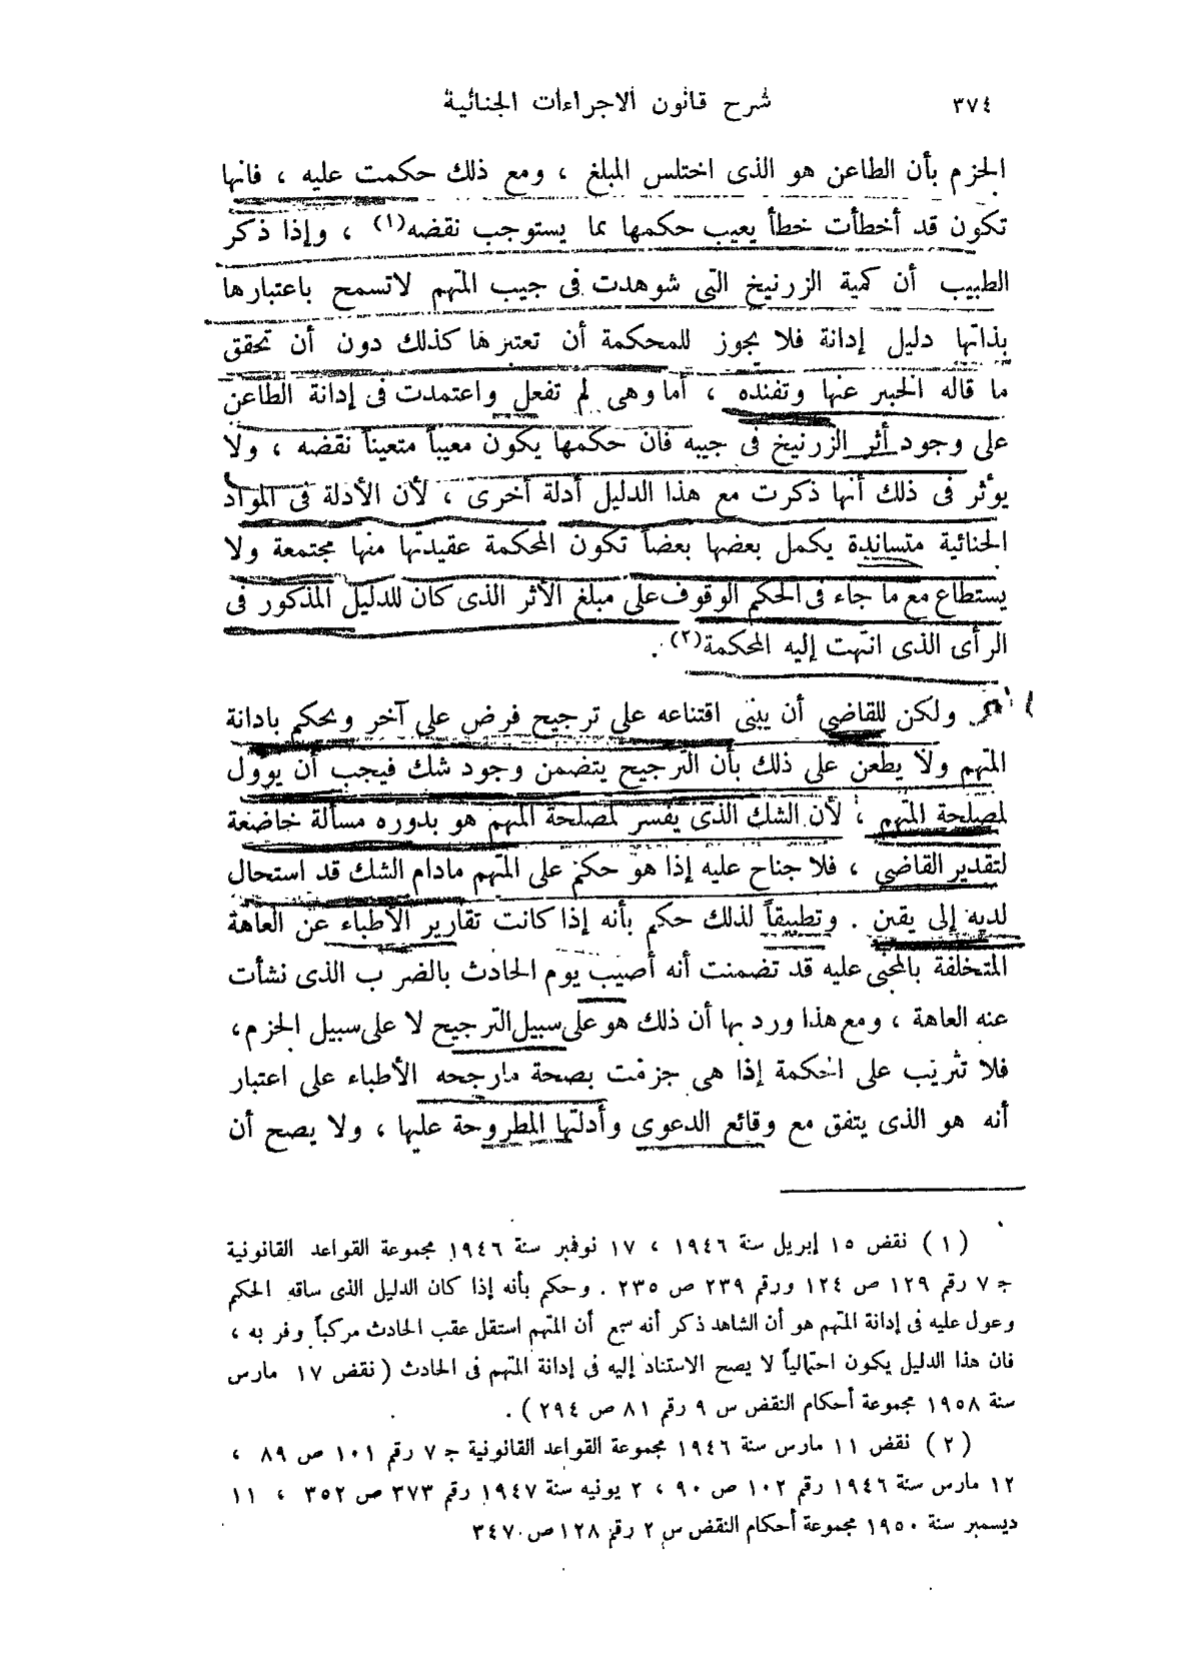 ٣٧٤
شرح قانون الاجراءات الجنائية
الجزم بأن الطاعن هو الذى اختلس المبلغ ، ومع ذلك حكمت عليه ، فانها
تكون قد أخطأت خطأ يعيب حكمها بما يستوجب نقضه(١) ، وإذا ذكر
الطبيب أن كمية الزرنيخ التى شوهدت فى جيب المتهم لاتسمح باعتبارها
بذاتها دليل إدانة فلا يجوز للمحكمة أن تعتبرها كذلك دون أن تحقق
ما قاله الخبير عنها وتفنده ، أما وهى لم تفعل واعتمدت فى إدانة الطاعن
على وجود أثر الزرنيخ فى جيبه فان حكمها يكون معيباً متعيناً نقضه ، ولا
يؤثر فى ذلك أنها ذكرت مع هذا الدليل أدلة أخرى ، لأن الأدلة فى المواد
الجنائية متساندة يكمل بعضها بعضاً تكون المحكمة عقيدتها منها مجتمعة ولا
يستطاع مع ما جاء فى الحكم الوقوف على مبلغ الأثر الذى كان للدليل المذكور فى
الرأى الذى انتهت إليه المحكمة(٢) .
ولكن للقاضى أن يبنى اقتناعه على ترجيح فرض على آخر ويحكم بادانة
المتهم ولا يطعن على ذلك بأن الترجيح يتضمن وجود شك فيجب أن يؤول
لمصلحة المتهم ، لأن الشك الذى يفسر لمصلحة المتهم هو بدوره مسألة خاضعة
لتقدير القاضى ، فلا جناح عليه إذا هو حكم على المتهم مادام الشك قد استحال
لديه إلى يقين . وتطبيقاً لذلك حكم بأنه إذا كانت تقارير الأطباء عن العاهة
المتخلفة بالمجنى عليه قد تضمنت أنه أصيب يوم الحادث بالضرب الذى نشأت
عنه العاهة ، ومع هذا ورد بها أن ذلك هو على سبيل الترجيح لا على سبيل الجزم ،
فلا تثريب على المحكمة إذا هى جزمت بصحة مارجحه الأطباء على اعتبار
أنه هو الذى يتفق مع وقائع الدعوى وأدلتها المطروحة عليها ، ولا يصح أن
(١) نقض ١٥ إبريل سنة ١٩٤٦ ، ١٧ نوفمبر سنة ١٩٤٦ مجموعة القواعد القانونية
ج ٧ رقم ١٢٩ ص ١٢٤ ورقم ٢٣٩ ص ٢٣٥ . وحكم بأنه إذا كان الدليل الذى ساقه الحكم
وعول عليه فى إدانة المتهم هو أن الشاهد ذكر أنه سمع أن المتهم استقل عقب الحادث مركباً وفر به ،
فان هذا الدليل يكون احتمالياً لا يصح الاستناد إليه فى إدانة المتهم فى الحادث ( نقض ١٧ مارس
سنة ١٩٥٨ مجموعة أحكام النقض س ٩ رقم ٨١ ص ٢٩٤ ) .
(٢) نقض ١١ مارس سنة ١٩٤٦ مجموعة القواعد القانونية ج ٧ رقم ١٠١ ص ٨٩ ،
١٢ مارس سنة ١٩٤٦ رقم ١٠٢ ص ٩٠ ، ٢ يونيه سنة ١٩٤٧ رقم ٣٧٣ ص ٣٥٢ ، ١١
ديسمبر سنة ١٩٥٠ مجموعة أحكام النقض س ٢ رقم ١٢٨ ص ٣٤٧٠